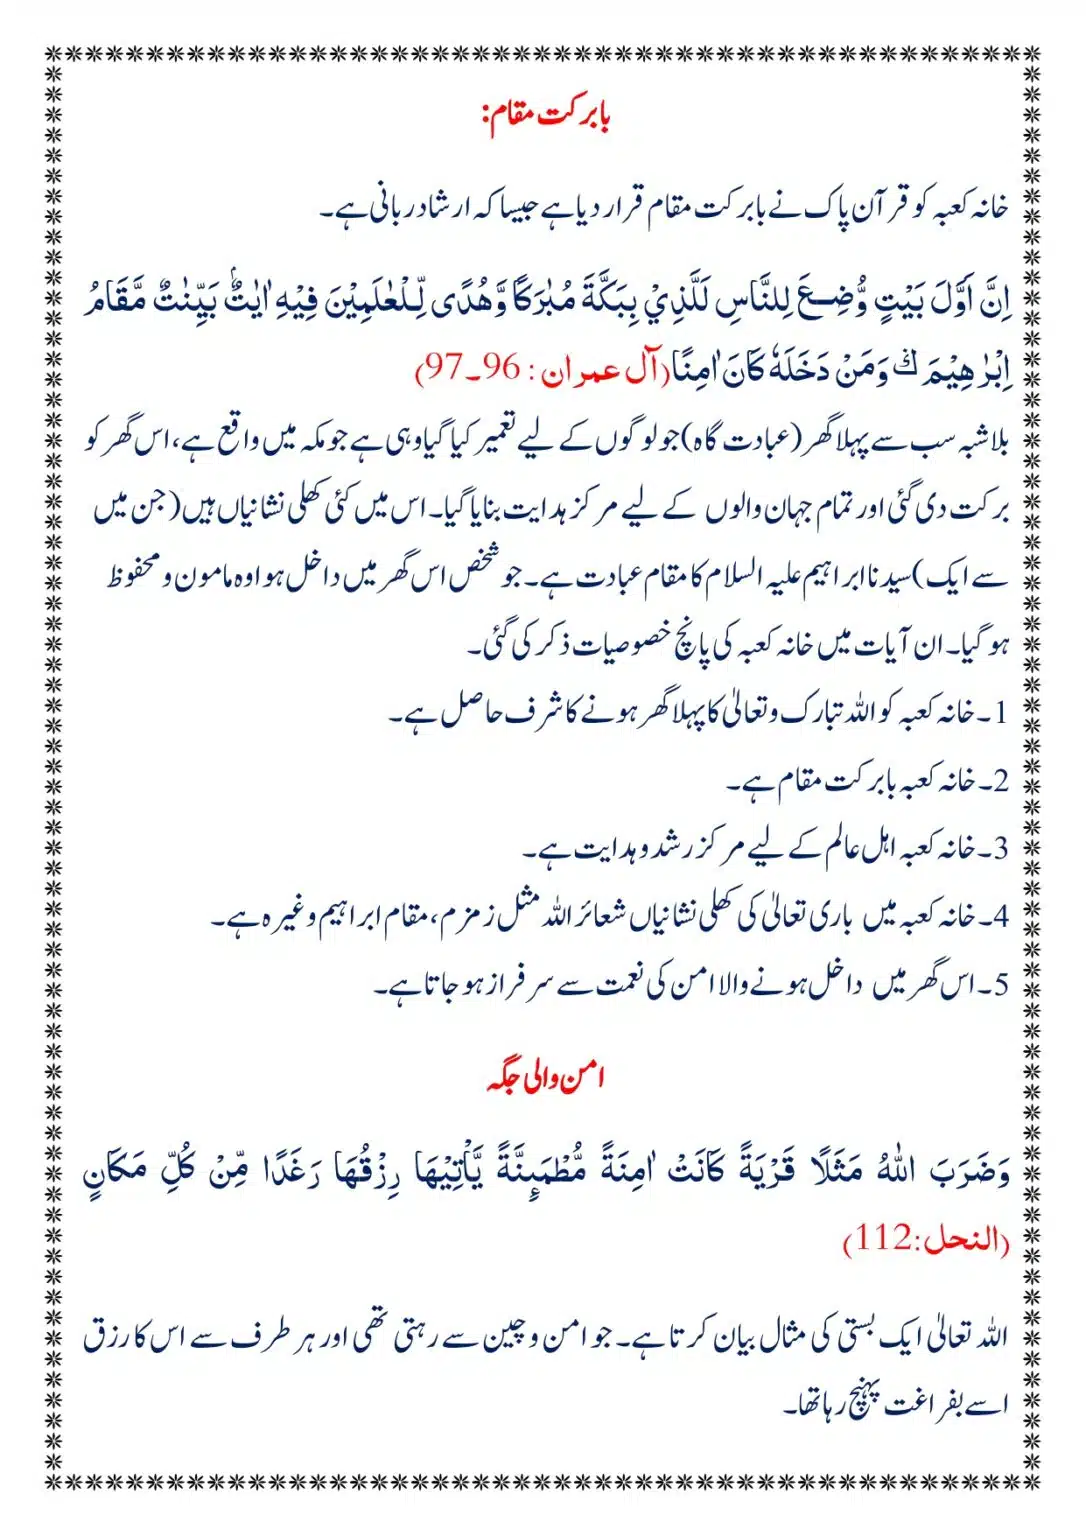 بابرکت مقام:
خانہ کعبہ کو قرآن پاک نے بابرکت مقام قرار دیا ہے جیسا کہ ارشاد ربانی ہے۔
اِنَّ اَوَّلَ بَیْتٍ وُّضِعَ لِلنَّاسِ لَلَّذِيْ بِبَكَّةَ مُبٰرَكًا وَّهُدًى لِّلْعٰلَمِيْنَ فِيْهِ اٰيٰتٌۢ بَيِّنٰتٌ مَّقَامُ
اِبْرٰهِيْمَ ڬ وَمَنْ دَخَلَهٗ كَانَ اٰمِنًا(آل عمران : 96۔97)
بلاشبہ سب سے پہلا گھر (عبادت گاہ) جو لوگوں کے لیے تعمیر کیا گیا وہی ہے جو مکہ میں واقع ہے، اس گھر کو
برکت دی گئی اور تمام جہان والوں کے لیے مرکز ہدایت بنایا گیا۔ اس میں کئی کھلی نشانیاں ہیں (جن میں
سے ایک) سیدنا ابراہیم علیہ السلام کا مقام عبادت ہے۔ جو شخص اس گھر میں داخل ہوا وہ مامون و محفوظ
ہو گیا۔ ان آیات میں خانہ کعبہ کی پانچ خصوصیات ذکر کی گئی۔
1۔ خانہ کعبہ کو اللہ تبارک وتعالیٰ کا پہلا گھر ہونے کا شرف حاصل ہے۔
2۔ خانہ کعبہ بابرکت مقام ہے۔
3۔ خانہ کعبہ اہل عالم کے لیے مرکز رشد وہدایت ہے۔
4۔ خانہ کعبہ میں باری تعالیٰ کی کھلی نشانیاں شعائر اللہ مثل زمزم، مقام ابراہیم وغیرہ ہے۔
5۔ اس گھر میں داخل ہونے والا امن کی نعمت سے سرفراز ہو جاتا ہے۔
امن والی جگہ
وَضَرَبَ اللّٰهُ مَثَلًا قَرْيَةً كَانَتْ اٰمِنَةً مُّطْمَىِٕنَّةً يَّاْتِيْهَا رِزْقُهَا رَغَدًا مِّنْ كُلِّ مَكَانٍ
(النحل:112)
اللہ تعالیٰ ایک بستی کی مثال بیان کرتا ہے۔ جو امن و چین سے رہتی تھی اور ہر طرف سے اس کا رزق
اسے بفراغت پہنچ رہا تھا۔